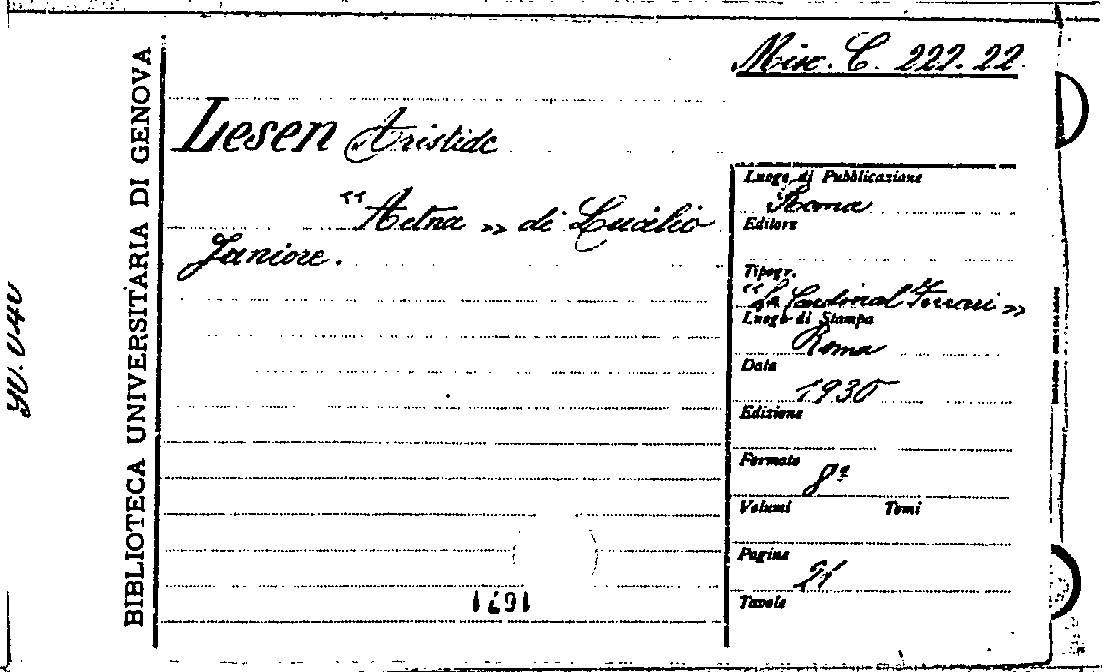 Misc. C. 222. 22
BIBLIOTECA UNIVERSITARIA DI GENOVA
Lesen Aristide
"Aetna" di Lucilio
Juniore.
Luogo di Pubblicazione
Roma
Editore
Tipogr.
"La Cardinal Ferrari"
Luogo di Stampa
Roma
Data
1930
Edizione
Formato
8º
Volumi Tomi
Pagine
21
Tavole
1671